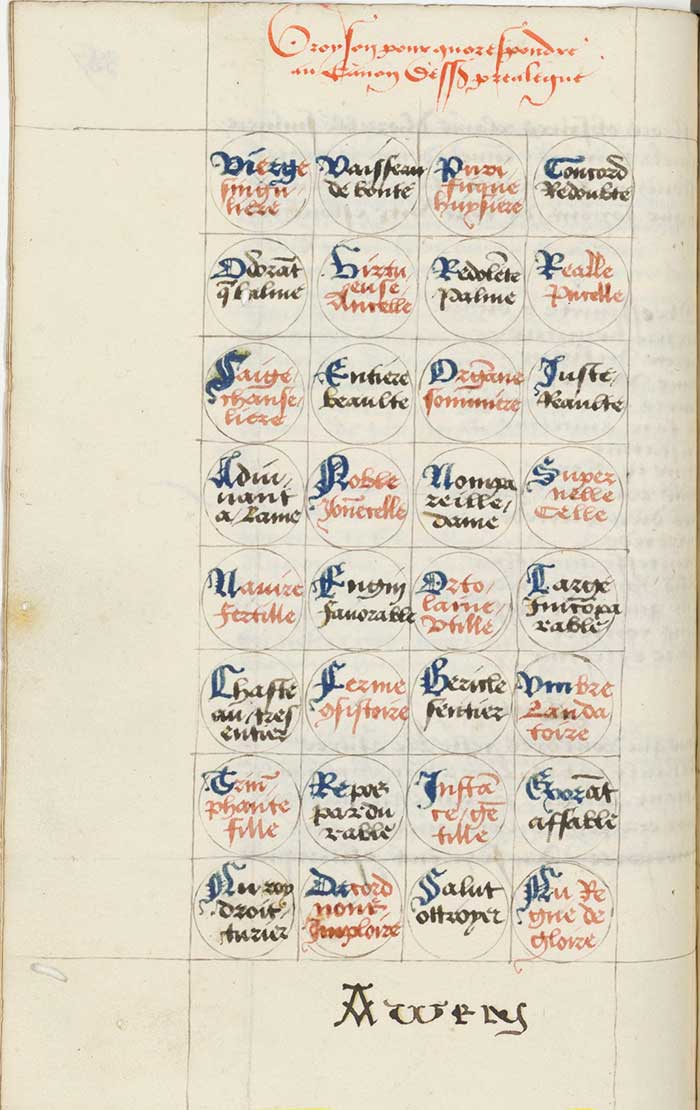 Oroyson pour quorespondre
au Canon dessß prealegue
Vierge singuliere Vaisseau de bonte Purificque lumiere Concord Redoubte
Odorāt q̄ balme Virtueuse Ancelle Redolēte palme Realle Pucelle
Saige chanseliere Entiere beaulte Orgāne sommiere Juste Reaulte
Adiuuant a lame Noble Jouuēcelle Nompareille dame Supernelle Celle
Nauire fertille Engin fauorable Ortolaine Vtille Large Incōparable
Chaste au tres entier Ferme 9sistoire sentier Vmbre Laudatoire
Triūphante fille Repos pardurable Instāce gētille Exorāt affable
Au roy droitturier Dacord nous Imploire Salut ottroyer Au Regne de gloire
Amens